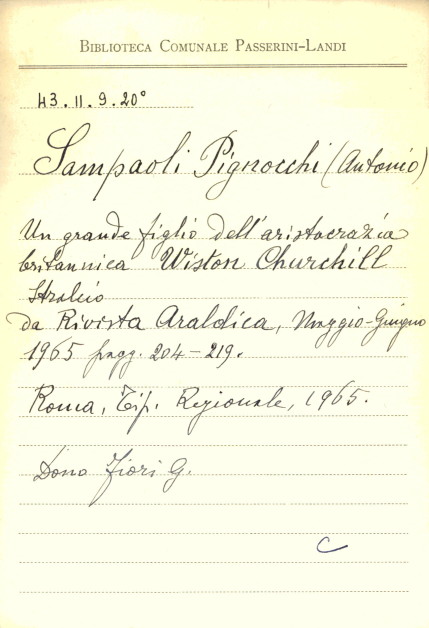 BIBLIOTECA COMUNALE PASSERINI-LANDI
43.II.9.20°
Sampaoli Pignocchi (Antonio)
Un grande figlio dell'aristocrazia
britannica Wiston Churchill
Stralcio
da Rivista Araldica, Maggio-Giugno
1965 pagg. 204-219.
Roma, Tip. Regionale, 1965.
Dono Fiori G.
C